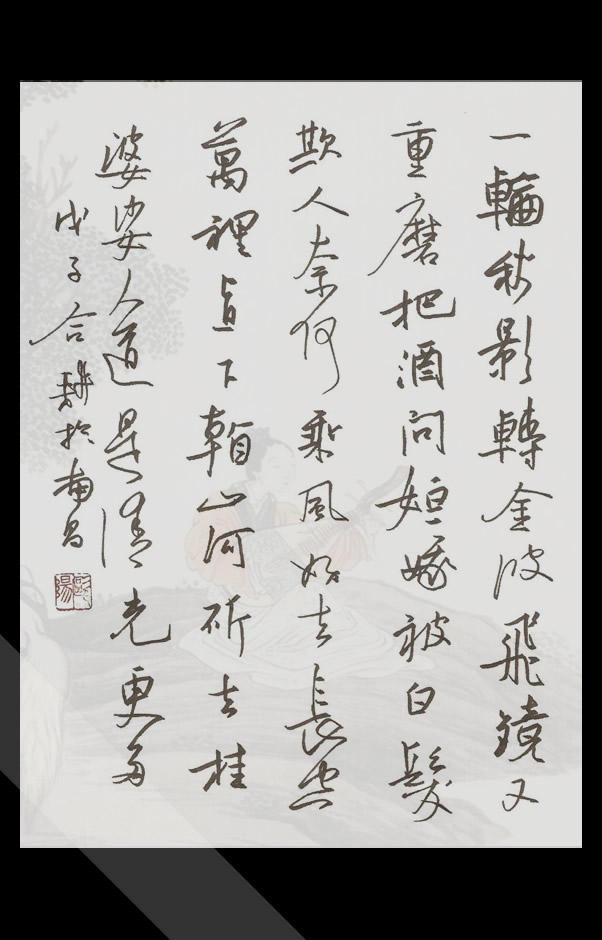 一輪秋影轉金波飛鏡又
重磨把酒問姮娥被白髮
欺人奈何乘風好去長空
萬裡直下看山河斫去桂
婆娑人道是清光更多
戊子合耕於南昌
歐陽